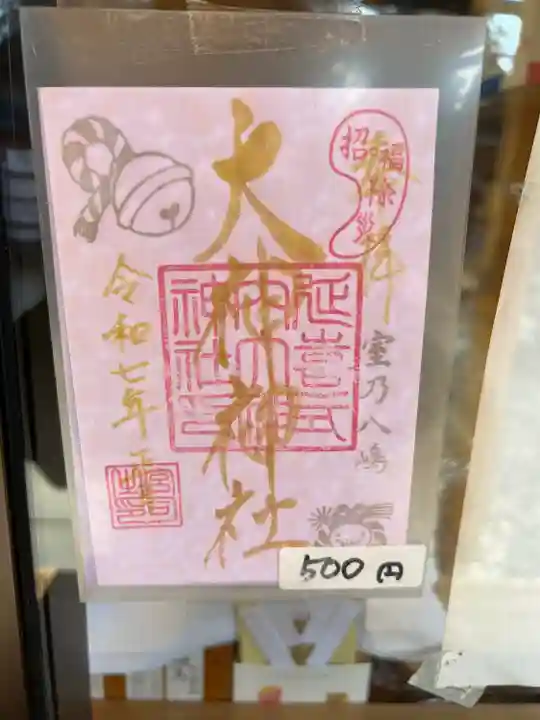 奉拝
招福除災
室乃八嶋
大神神社
延喜式
内大神
神社印
令和七年
500円